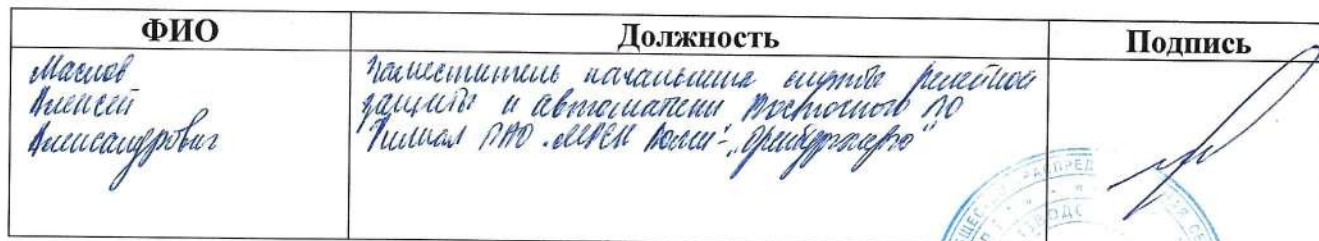 ФИО Должность Подпись
Маслов
Алексей
Александрович
Заместитель начальника службы релейной
защиты и автоматики Восточного ПО
Филиал ПАО "МРСК Волги"-"Оренбургэнерго"
РАСПРЕД